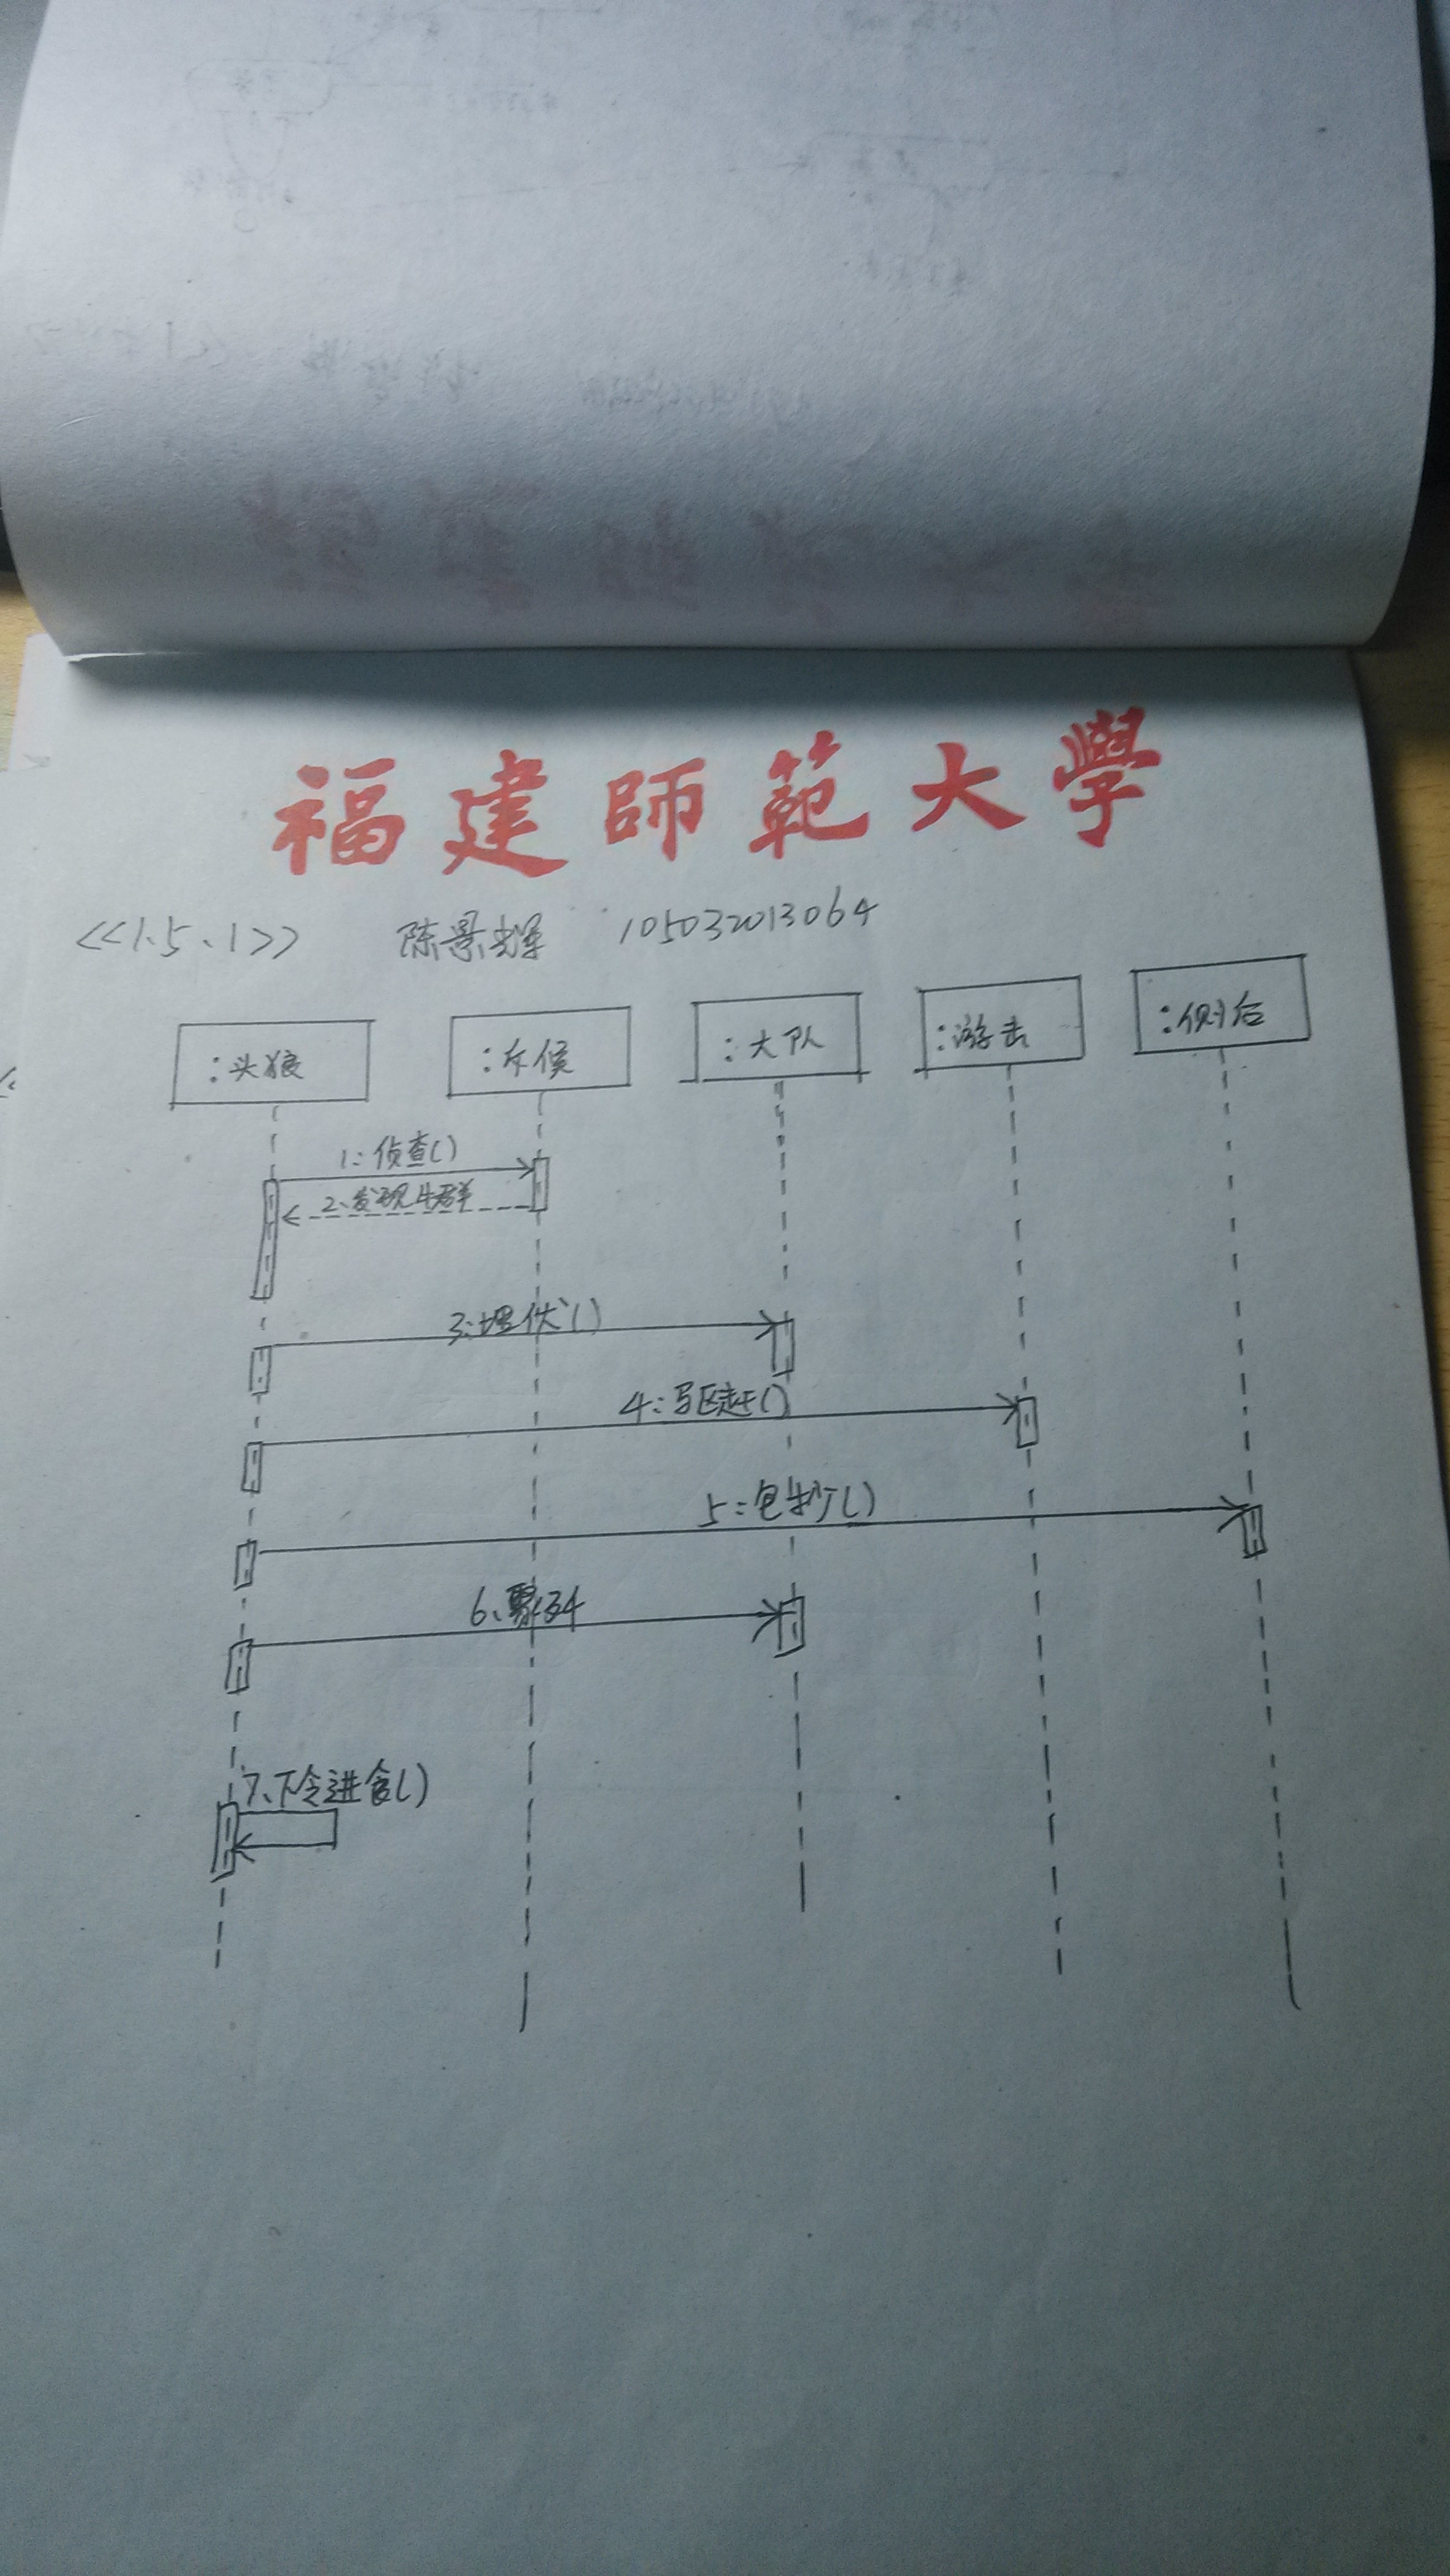 福建師範大學
<<1.5.1>> 陈景辉 105032013064
:头狼 :斥候 :大队 :游击 :侧后
1:侦查()
2.发现牛群
3:埋伏()
4:驱赶()
5:包抄()
6、
7、下令进食()